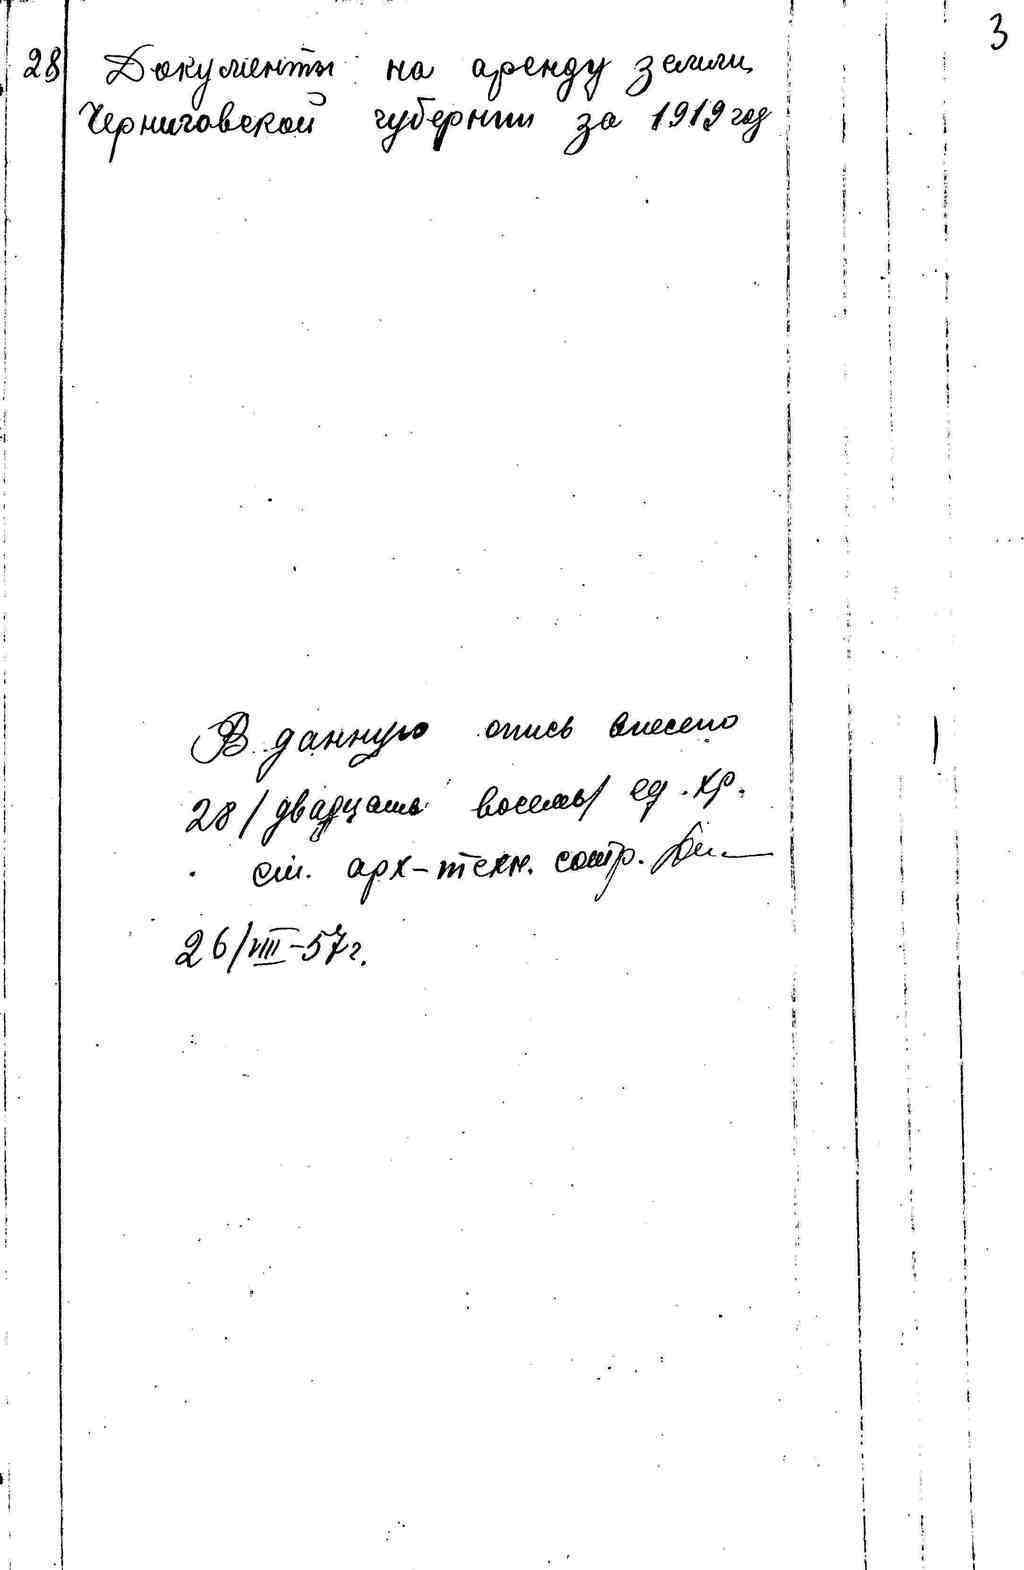 3
28 Документы на аренду земли
Черниговской губернии за 1919 год
В данную опись внесено
28 /двадцать восемь/ ед. хр.
ст. арх-техн. сотр.
26/VIII-57г.